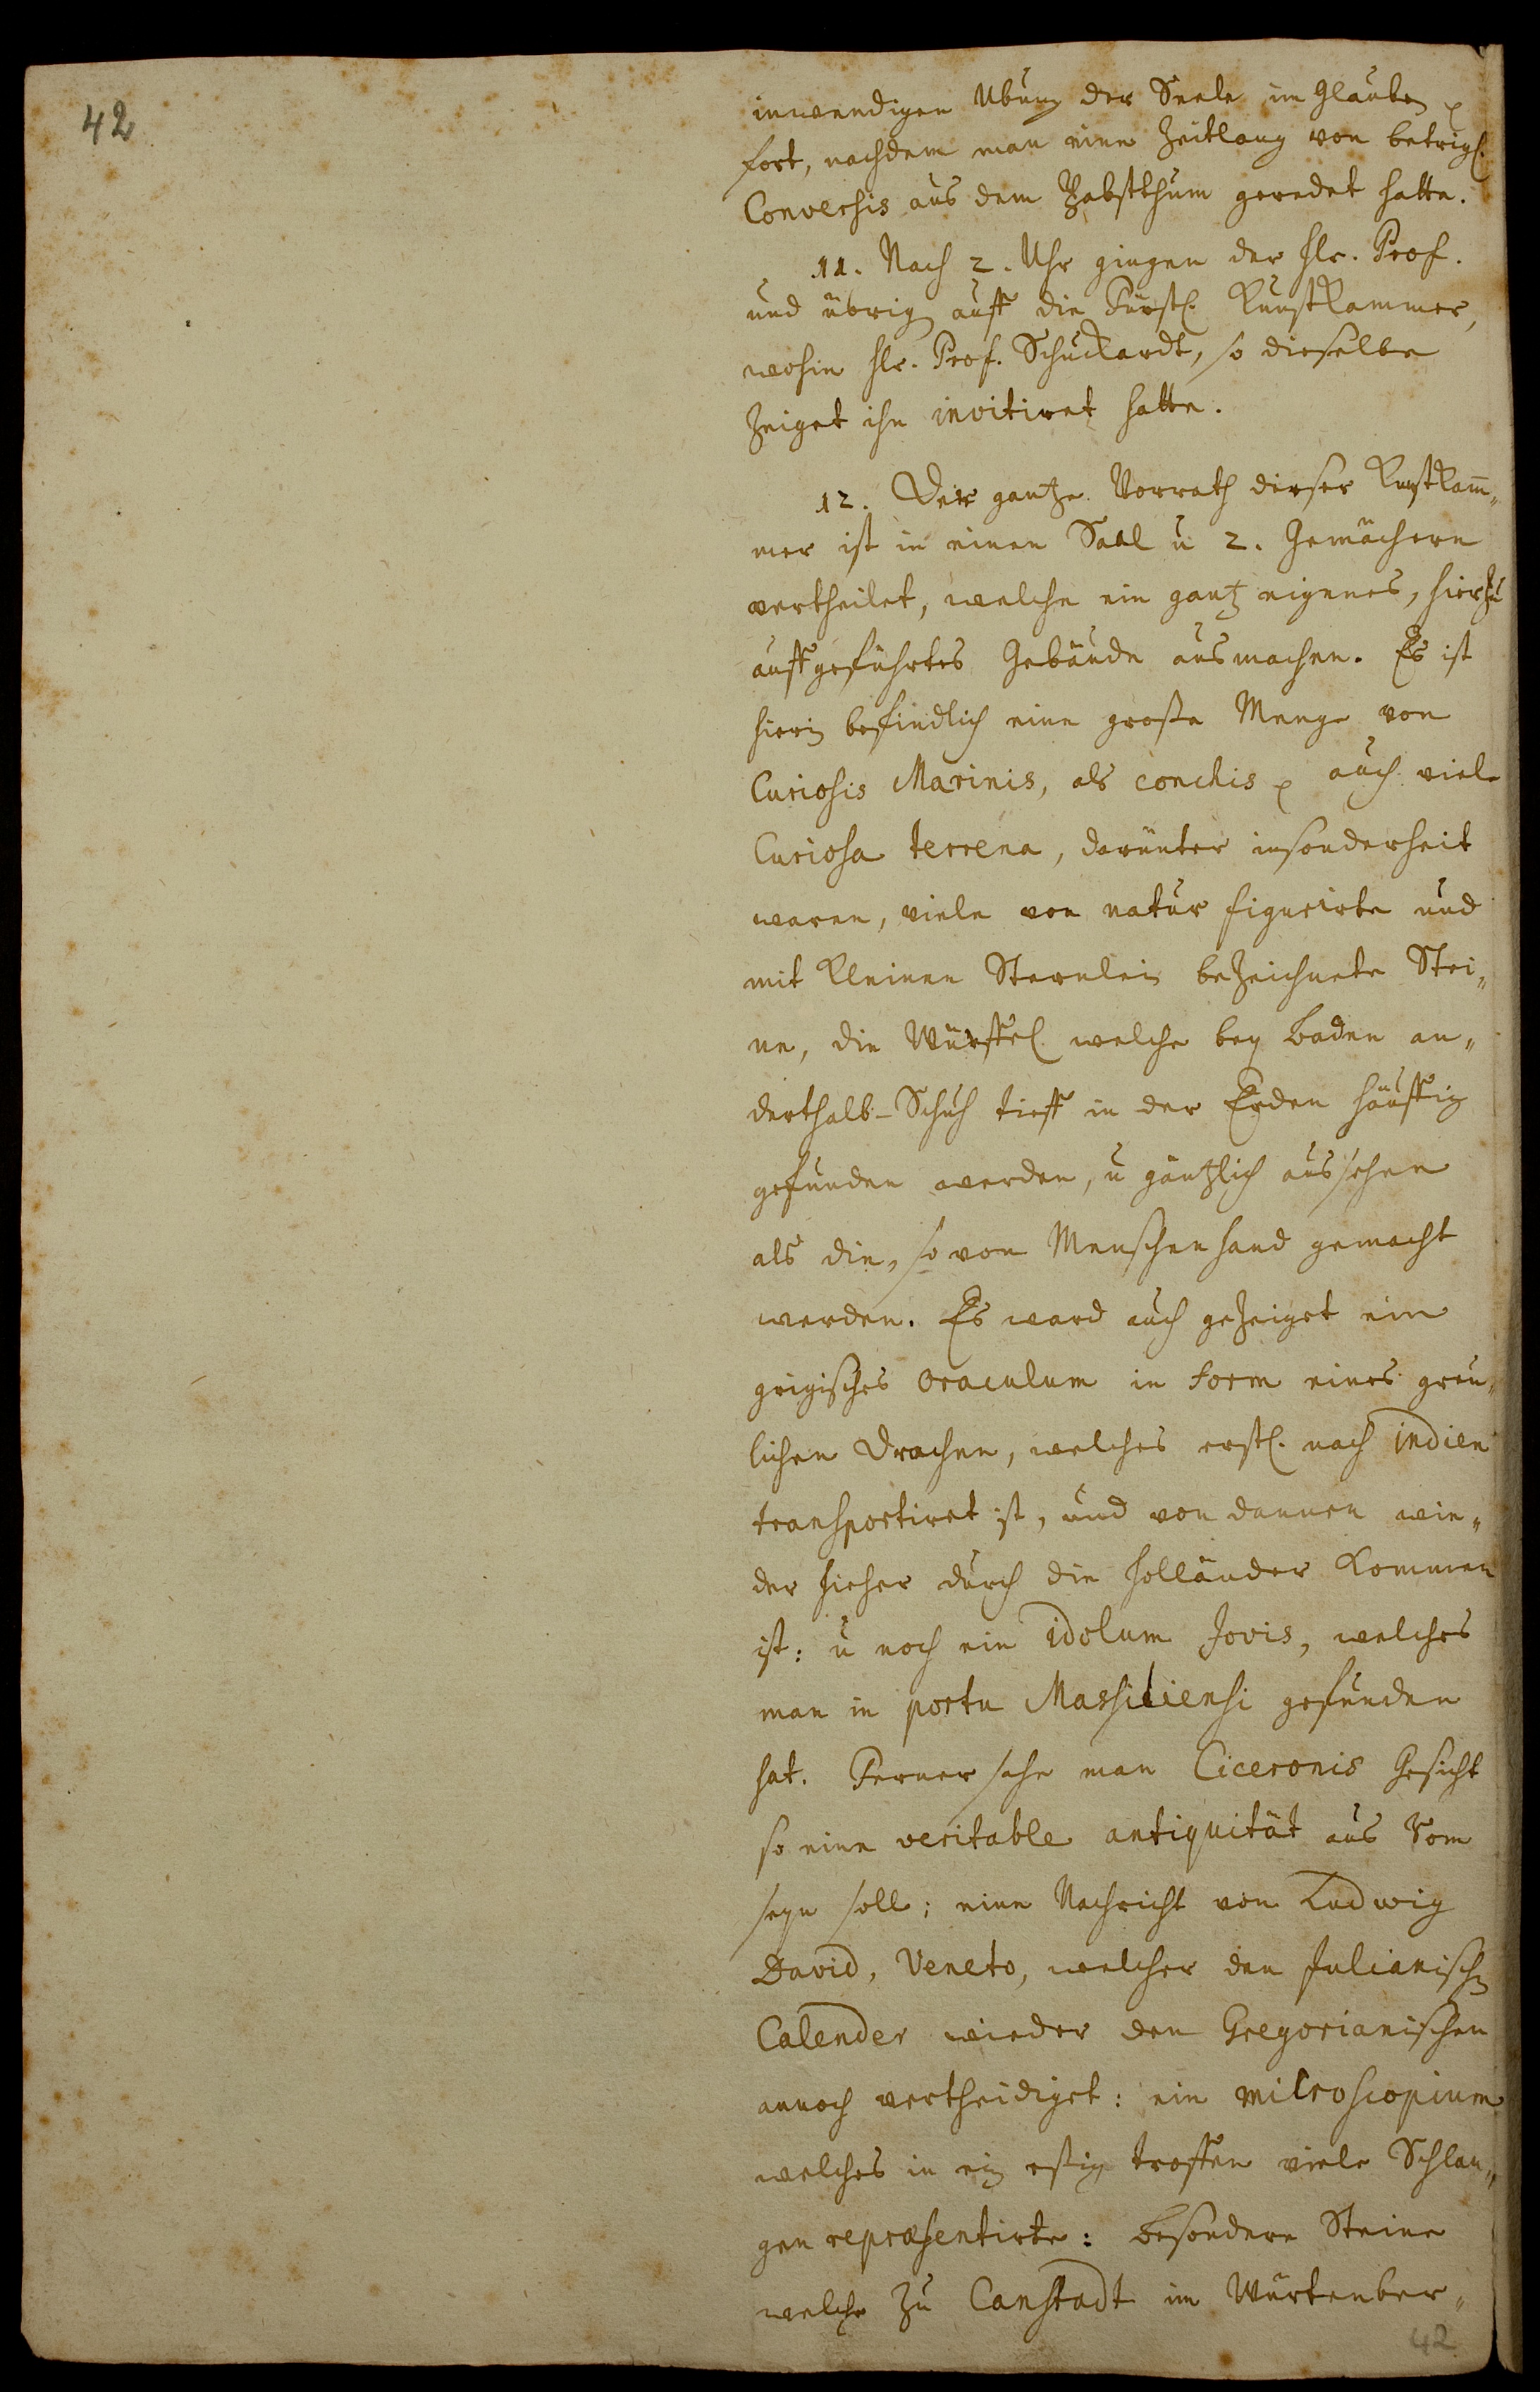 42
inwendigen Ubung der Seele im Glauben
fort, nachdem man eine Zeitlang von betrigl.
Conversis aus dem Pabstthum geredet hatte.
11. Nach 2. Uhr gingen der Hr. Prof.
und übrige auff die Fürstl. Kunstkammer,
wohin Hr. Prof. Schuckardt, so dieselbe
zeiget ihn invitiret hatte.
12. Der gantze Vorrath dieser Kunstkam¬
mer ist in einen Saal u 2. Gemächern
vertheilet, welche ein gantz eigenes, hierzu
auffgeführtes Gebäude ausmachen. Es ist
hierin befindlich eine große Menge von
Curiosis Marinis, als conchis auch viele
Curiosa terrena, darunter insonderheit
waren, viele von natur figurirte und
mit kleinen Sternlein bezeichnete Stei¬
ne, die Würffel welche bey Baden an¬
derthalb-Schuh tieff in der Erden häuffig
gefunden werden, u gäntzlich aussehen
als die, so von Menschenhand gemacht
werden. Es ward auch gezeiget ein
grigisches oraculum in form eines greu¬
lichen Drachen, welches erstl. nach Indien
transportiret ist, und von dannen wie¬
der hieher durch die Holländer kommen
ist: u noch ein idolum Jovis, welches
man in portu Massiliensi gefunden
hat. Ferner sahe man Ciceronis Gesicht
so eine veritable antiquität aus Rom
seyn soll; eine Nachricht von Ludwig
David, Veneto, welcher den Julianischen
Calender wieder den Gregorianischen
annoch vertheidiget: ein microscopium
welches in ein eßig troffen viele Schlan¬
gen repraesentirte: besondere Steine
welche zu Canstadt im Würtenber¬
42